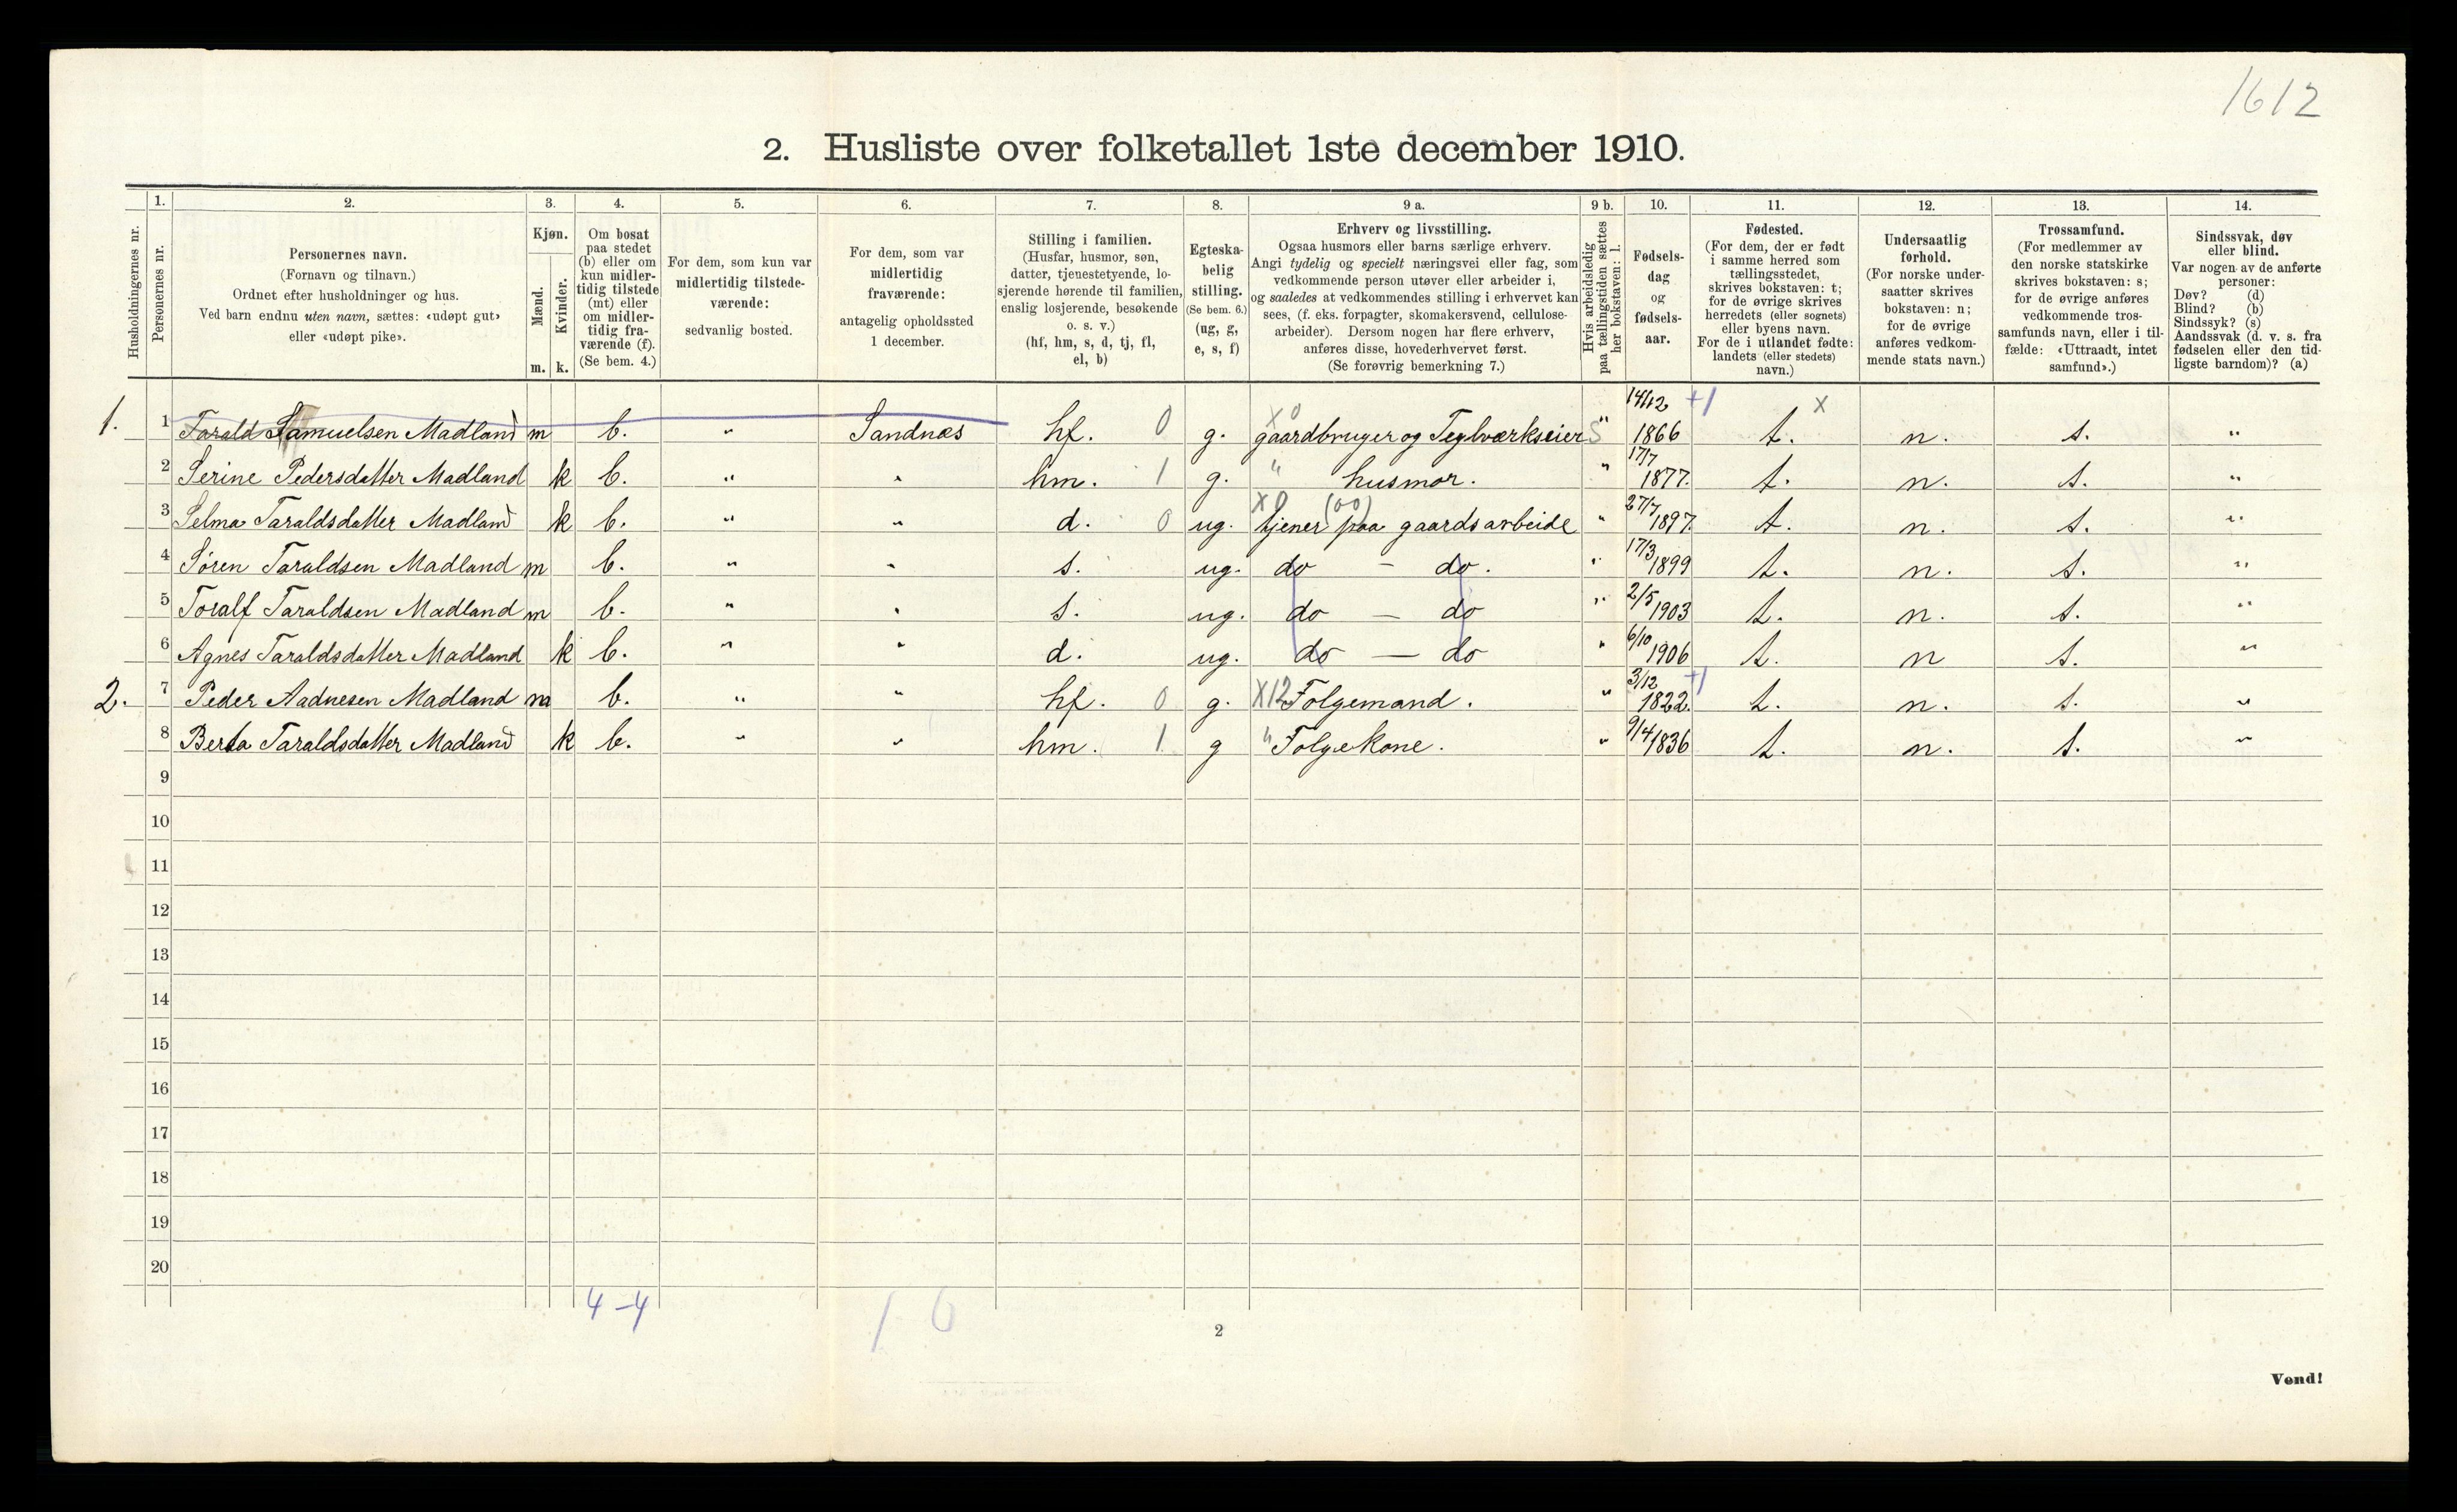 1612
2. Husliste over folketallet 1ste december 1910.
Husholdningernes nr.
1.
Personernes nr.
2.
Personernes navn.
(Fornavn og tilnavn.)
Ordnet efter husholdninger og hus.
Ved barn endnu uten navn, sættes: «udøpt gut»
eller «udøpt pike».
3.
Kjøn.
Mænd.
Kvinder.
m. k.
4.
Om bosat
paa stedet
(b) eller om
kun midler-
tidig tilstede
(mt) eller
om midler-
tidig fra-
værende (f).
(Se bem. 4.)
5.
For dem, som kun var
midlertidig tilstede-
værende:
sedvanlig bosted.
6.
For dem, som var
midlertidig
fraværende:
antagelig opholdssted
1 december.
7.
Stilling i familien.
(Husfar, husmor, søn,
datter, tjenestetyende, lo-
sjerende hørende til familien,
enslig losjerende, besøkende
o. s. v.)
(hf, hm, s, d, tj, fl,
el, b)
8.
Egteska-
belig
stilling.
(Se bem. 6.)
(ug, g,
e, s, f)
9 a.
Erhverv og livsstilling.
Ogsaa husmors eller barns særlige erhverv.
Angi tydelig og specielt næringsvei eller fag, som
vedkommende person utøver eller arbeider i,
og saaledes at vedkommendes stilling i erhvervet kan
sees, (f. eks. forpagter, skomakersvend, cellulose-
arbeider). Dersom nogen har flere erhverv,
anføres disse, hovederhvervet først.
(Se forøvrig bemerkning 7.)
9 b.
Hvis arbeidsledig
paa tællingstiden sættes
her bokstaven: l.
10.
Fødsels-
dag
og
fødsels-
aar.
11.
Fødested.
(For dem, der er født
i samme herred som
tællingsstedet,
skrives bokstaven: t;
for de øvrige skrives
herredets (eller sognets)
eller byens navn.
For de i utlandet fødte:
landets (eller stedets)
navn.)
12.
Undersaatlig
forhold.
(For norske under-
saatter skrives
bokstaven: n;
for de øvrige
anføres vedkom-
mende stats navn.)
13.
Trossamfund.
(For medlemmer av
den norske statskirke
skrives bokstaven: s;
for de øvrige anføres
vedkommende tros-
samfunds navn, eller i til-
fælde: «Uttraadt, intet
samfund».)
14.
Sindssvak, døv
eller blind.
Var nogen av de anførte
personer:
Døv? (d)
Blind? (b)
Sindssyk? (s)
Aandssvak (d. v. s. fra
fødselen eller den tid-
ligste barndom)? (a)
1. 1 Tarald Samuelsen Madland m b. " Sandnes hf. 0 g. x0 gaardbruger og Teglværkseier S " 14/12 1866 +1 t. x n. s. "
2 Serine Pedersdatter Madland k b. " " hm. 1 g. " husmor. " 17/7 1877. t. n. s. "
3 Selma Taraldsdatter Madland k b. " " d. 0 ug. x0 (00) tjener paa gaardsarbeide " 27/7 1897. t. n. s. "
4 Søren Taraldsen Madland m b. " " s. ug. do - do. " 17/3 1899 t. n. s. "
5 Toralf Taraldsen Madland m b. " " s. ug. do - do " 2/5 1903 t. n. s. "
6 Agnes Taraldsdatter Madland k b. " " d. ug. do - do " 6/10 1906 t. n s. "
2. 7 Peder Aadnesen Madland m b. " " hf. 0 g. X12 Følgemand. " 3/12 1822. +1 t. n. s. "
8 Berta Taraldsdatter Madland k b. " " hm. 1 g " Følgekone. " 9/4 1836 t. n. s. "
9
10
11
12
13
14
15
16
17
18
19
20
4 - 4
1 0
2
Vend!